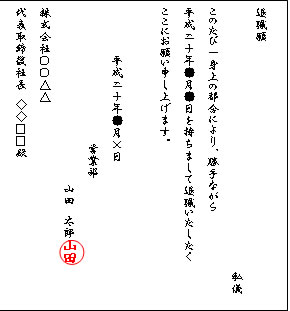 退職願
私儀
このたび一身上の都合により、勝手ながら
平成二十年●月●日を持ちまして退職いたしたく
ここにお願い申し上げます。
平成二十年●月×日
営業部
山田 太郎
山田
株式会社○○△△
代表取締役社長 ◇◇□□殿